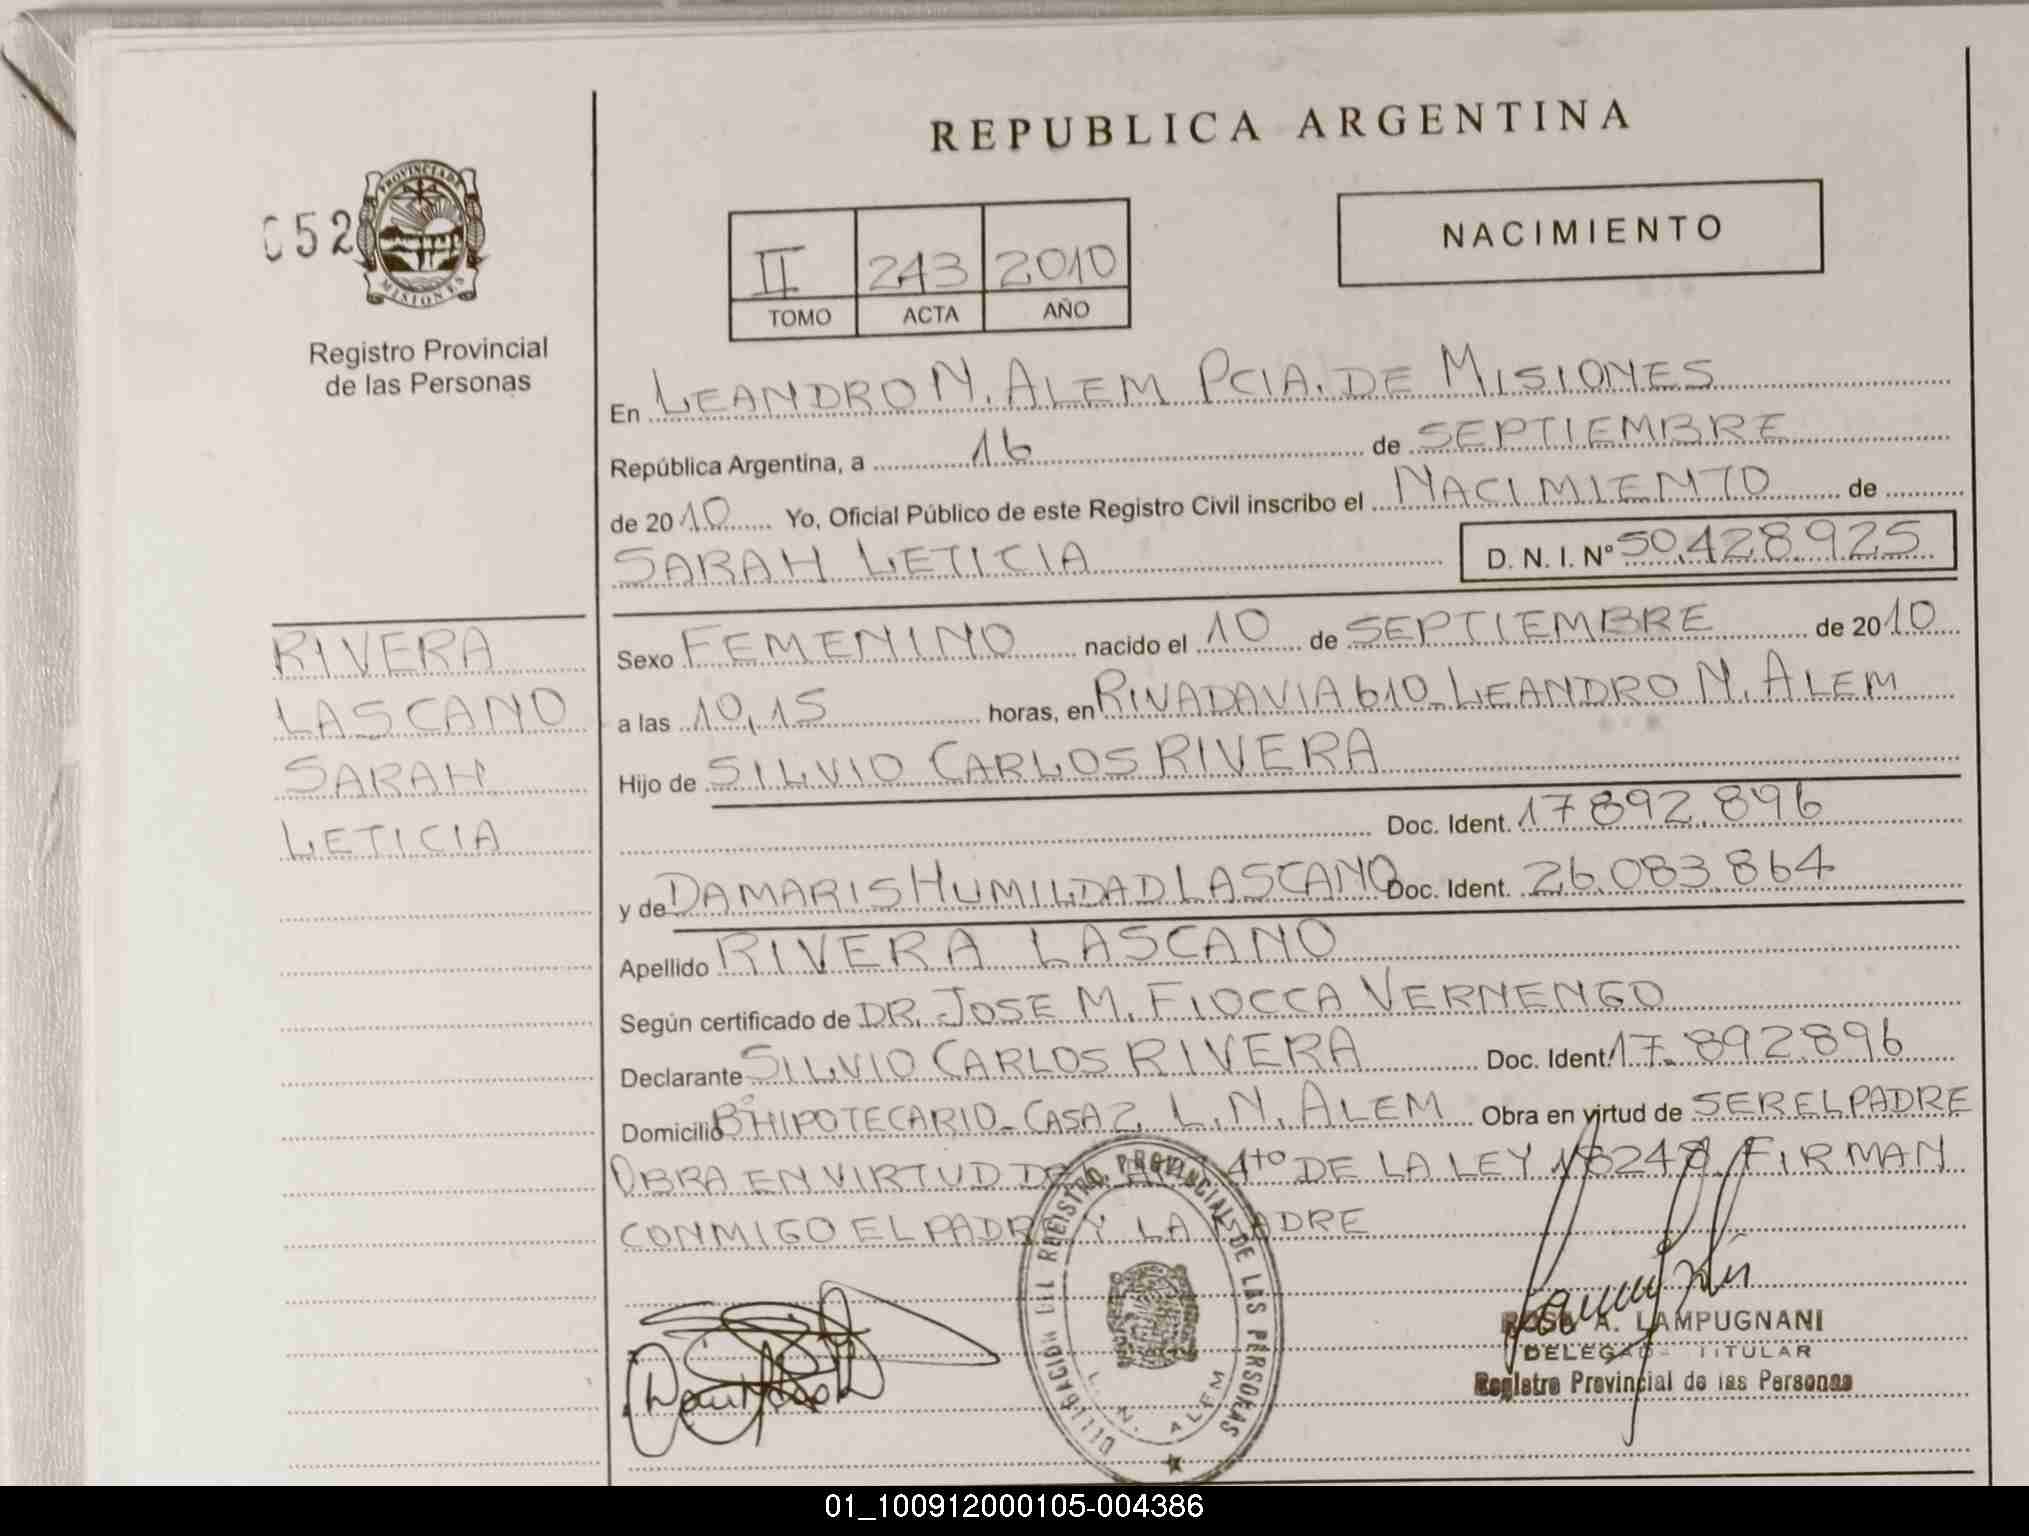 REPUBLICA ARGENTINA
052
PROVINCIA DE
MISIONES
Registro Provincial
de las Personas
II 243 2010
TOMO ACTA AÑO
NACIMIENTO
En LEANDRO N. ALEM PCIA. DE MISIONES
República Argentina, a 16 de SEPTIEMBRE
de 2010 Yo, Oficial Público de este Registro Civil inscribo el NACIMIENTO de
SARAH LETICIA D. N. I. Nº 50.428.925
RIVERA
LASCANO
SARAH
LETICIA
Sexo FEMENINO nacido el 10 de SEPTIEMBRE de 2010
a las 10,15 horas, en RIVADAVIA 610_ LEANDRO N. ALEM
Hijo de SILVIO CARLOS RIVERA
Doc. Ident. 17892.896
y de DAMARIS HUMILDAD LASCANO Doc. Ident. 26.083.864
Apellido RIVERA LASCANO
Según certificado de DR. JOSE M. FIOCCA VERNENGO
Declarante SILVIO CARLOS RIVERA Doc. Ident. 17.892.896
Domicilio Bº HIPOTECARIO_ CASA 2 L.N. ALEM Obra en virtud de SER EL PADRE
OBRA EN VIRTUD DEL 4to DE LA LEY 18248. FIRMAN
CONMIGO EL PADRE Y LA MADRE
DELEGACION DEL REGISTRO PROVINCIAL DE LAS PERSONAS
L. N. ALEM
ROSA A. LAMPUGNANI
DELEGADA TITULAR
Registro Provincial de las Personas
01_100912000105-004386